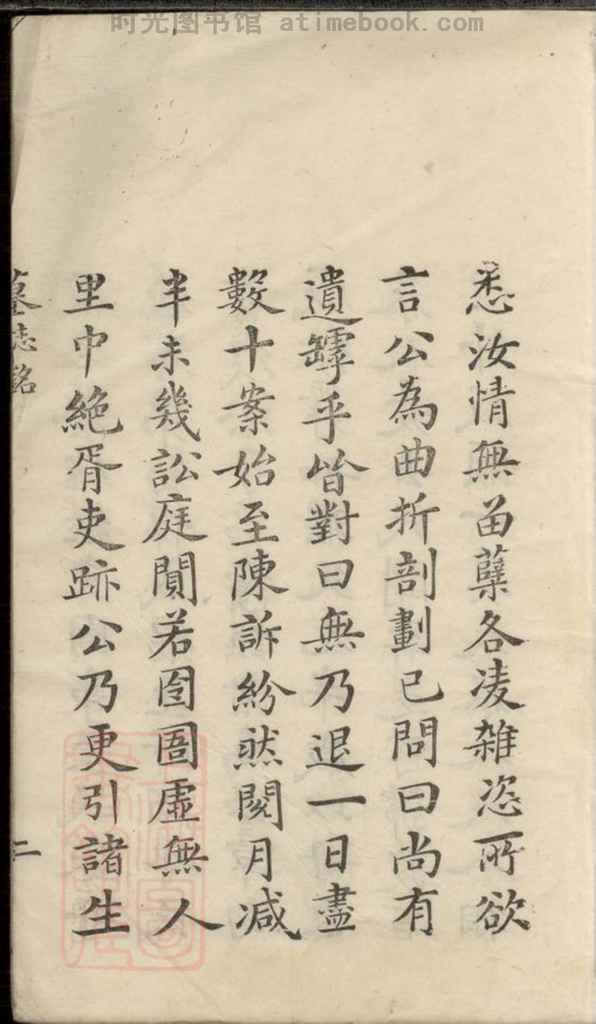 时光图书馆 atimebook.com
悉汝情無畱蘖各凌雜恣所欲
言公為曲折剖劃已問曰尚有
遺罅乎皆對曰無乃退一日盡
數十案始至陳訴紛然閱月減
半未幾訟庭閴若囹圄虛無人
里中絶胥吏跡公乃更引諸生
墓志銘
二